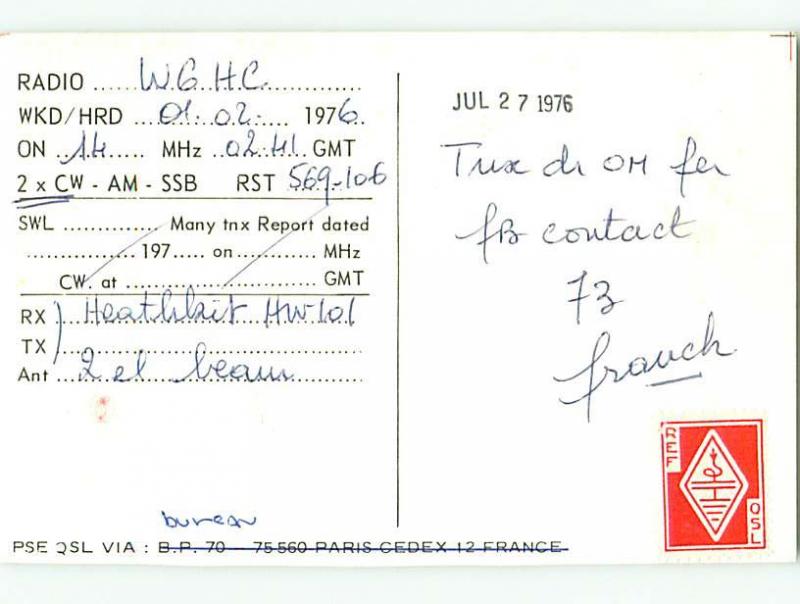 RADIO ...... W6HC
WKD/HRD ... 01.02. ..... 1976.
ON .. 14 ..... MHz .. 02.41. GMT
2 x CW - AM - SSB RST 569-106
SWL .............. Many tnx Report dated
.................. 197..... on ............... MHz
CW. at .............................. GMT
RX ) Heathkit HW101
TX
Ant ... 2 el beam
bureau
PSE QSL VIA : B.P. 70 — 75560 PARIS CEDEX 12 FRANCE
JUL 27 1976
Tnx dr OM fer
fB contact
73
REF
QSL